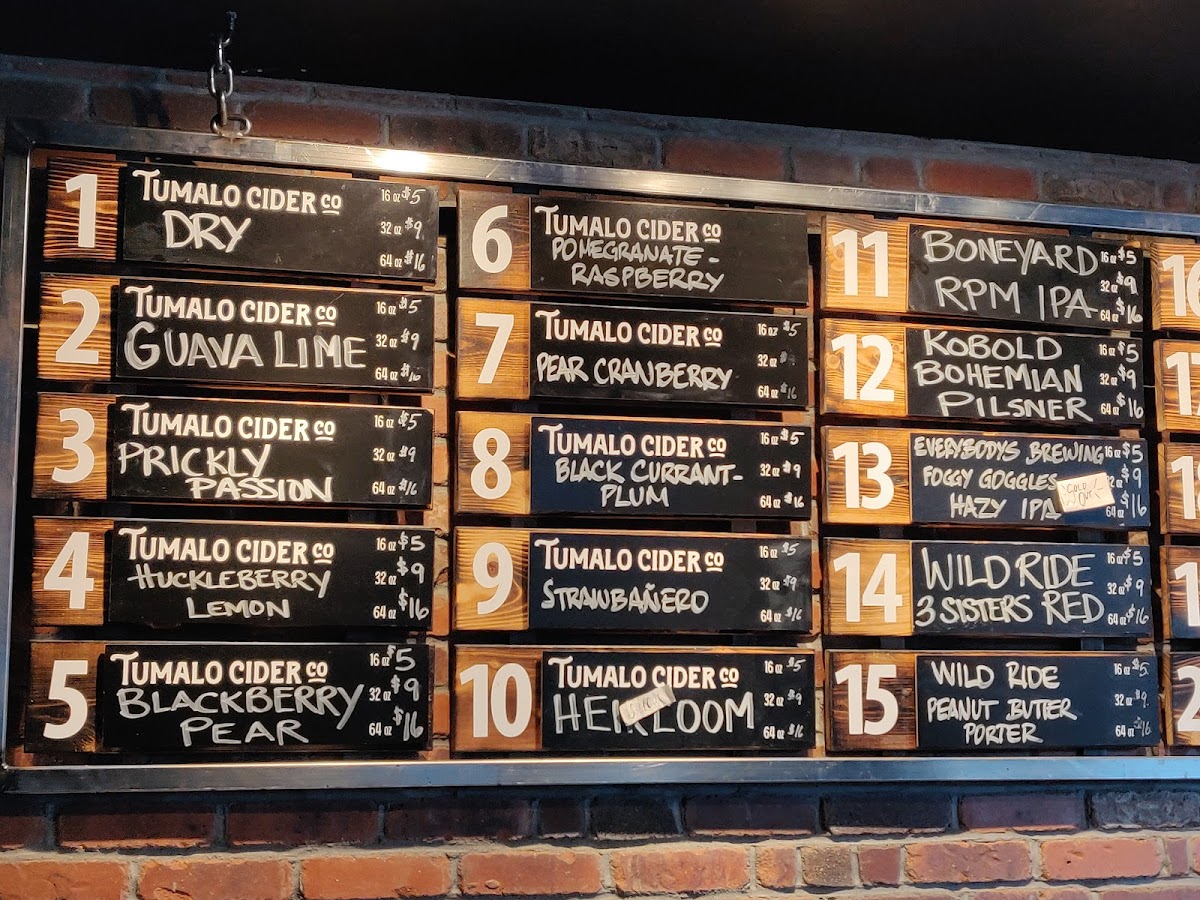 1
TUMALO CIDER CO
DRY
16 oz $5
32 oz $9
64 oz $16
2
TUMALO CIDER CO
GUAVA LIME
16 oz $5
32 oz $9
64 oz $16
3
TUMALO CIDER CO
PRICKLY
PASSION
16 oz $5
32 oz $9
64 oz $16
4
TUMALO CIDER CO
HUCKLEBERRY
LEMON
16 oz $5
32 oz $9
64 oz $16
5
TUMALO CIDER CO
BLACKBERRY
PEAR
16 oz $5
32 oz $9
64 oz $16
6
TUMALO CIDER CO
POMEGRANATE-
RASPBERRY
7
TUMALO CIDER CO
PEAR CRANBERRY
16 oz $5
32 oz
64 oz $16
8
TUMALO CIDER CO
BLACK CURRANT-
PLUM
16 oz $5
32 oz $9
64 oz $16
9
TUMALO CIDER CO
STRAWBAÑERO
16 oz $5
32 oz $9
64 oz $16
10
TUMALO CIDER CO
HEIRLOOM
16 oz $5
32 oz $9
64 oz $16
11
BONEYARD
RPM IPA
16 oz $5
32 oz $9
64 oz $16
12
KOBOLD
BOHEMIAN
PILSNER
16 oz $5
32 oz $9
64 oz $16
13
EVERYBODYS BREWING
FOGGY GOGGLES
HAZY IPA
SOLD
OUT
16 oz $5
32 oz $9
64 oz $16
14
WILD RIDE
3 SISTERS RED
16 oz $5
32 oz $9
64 oz $16
15
WILD RIDE
PEANUT BUTTER
PORTER
16 oz $5
32 oz $9
64 oz $16